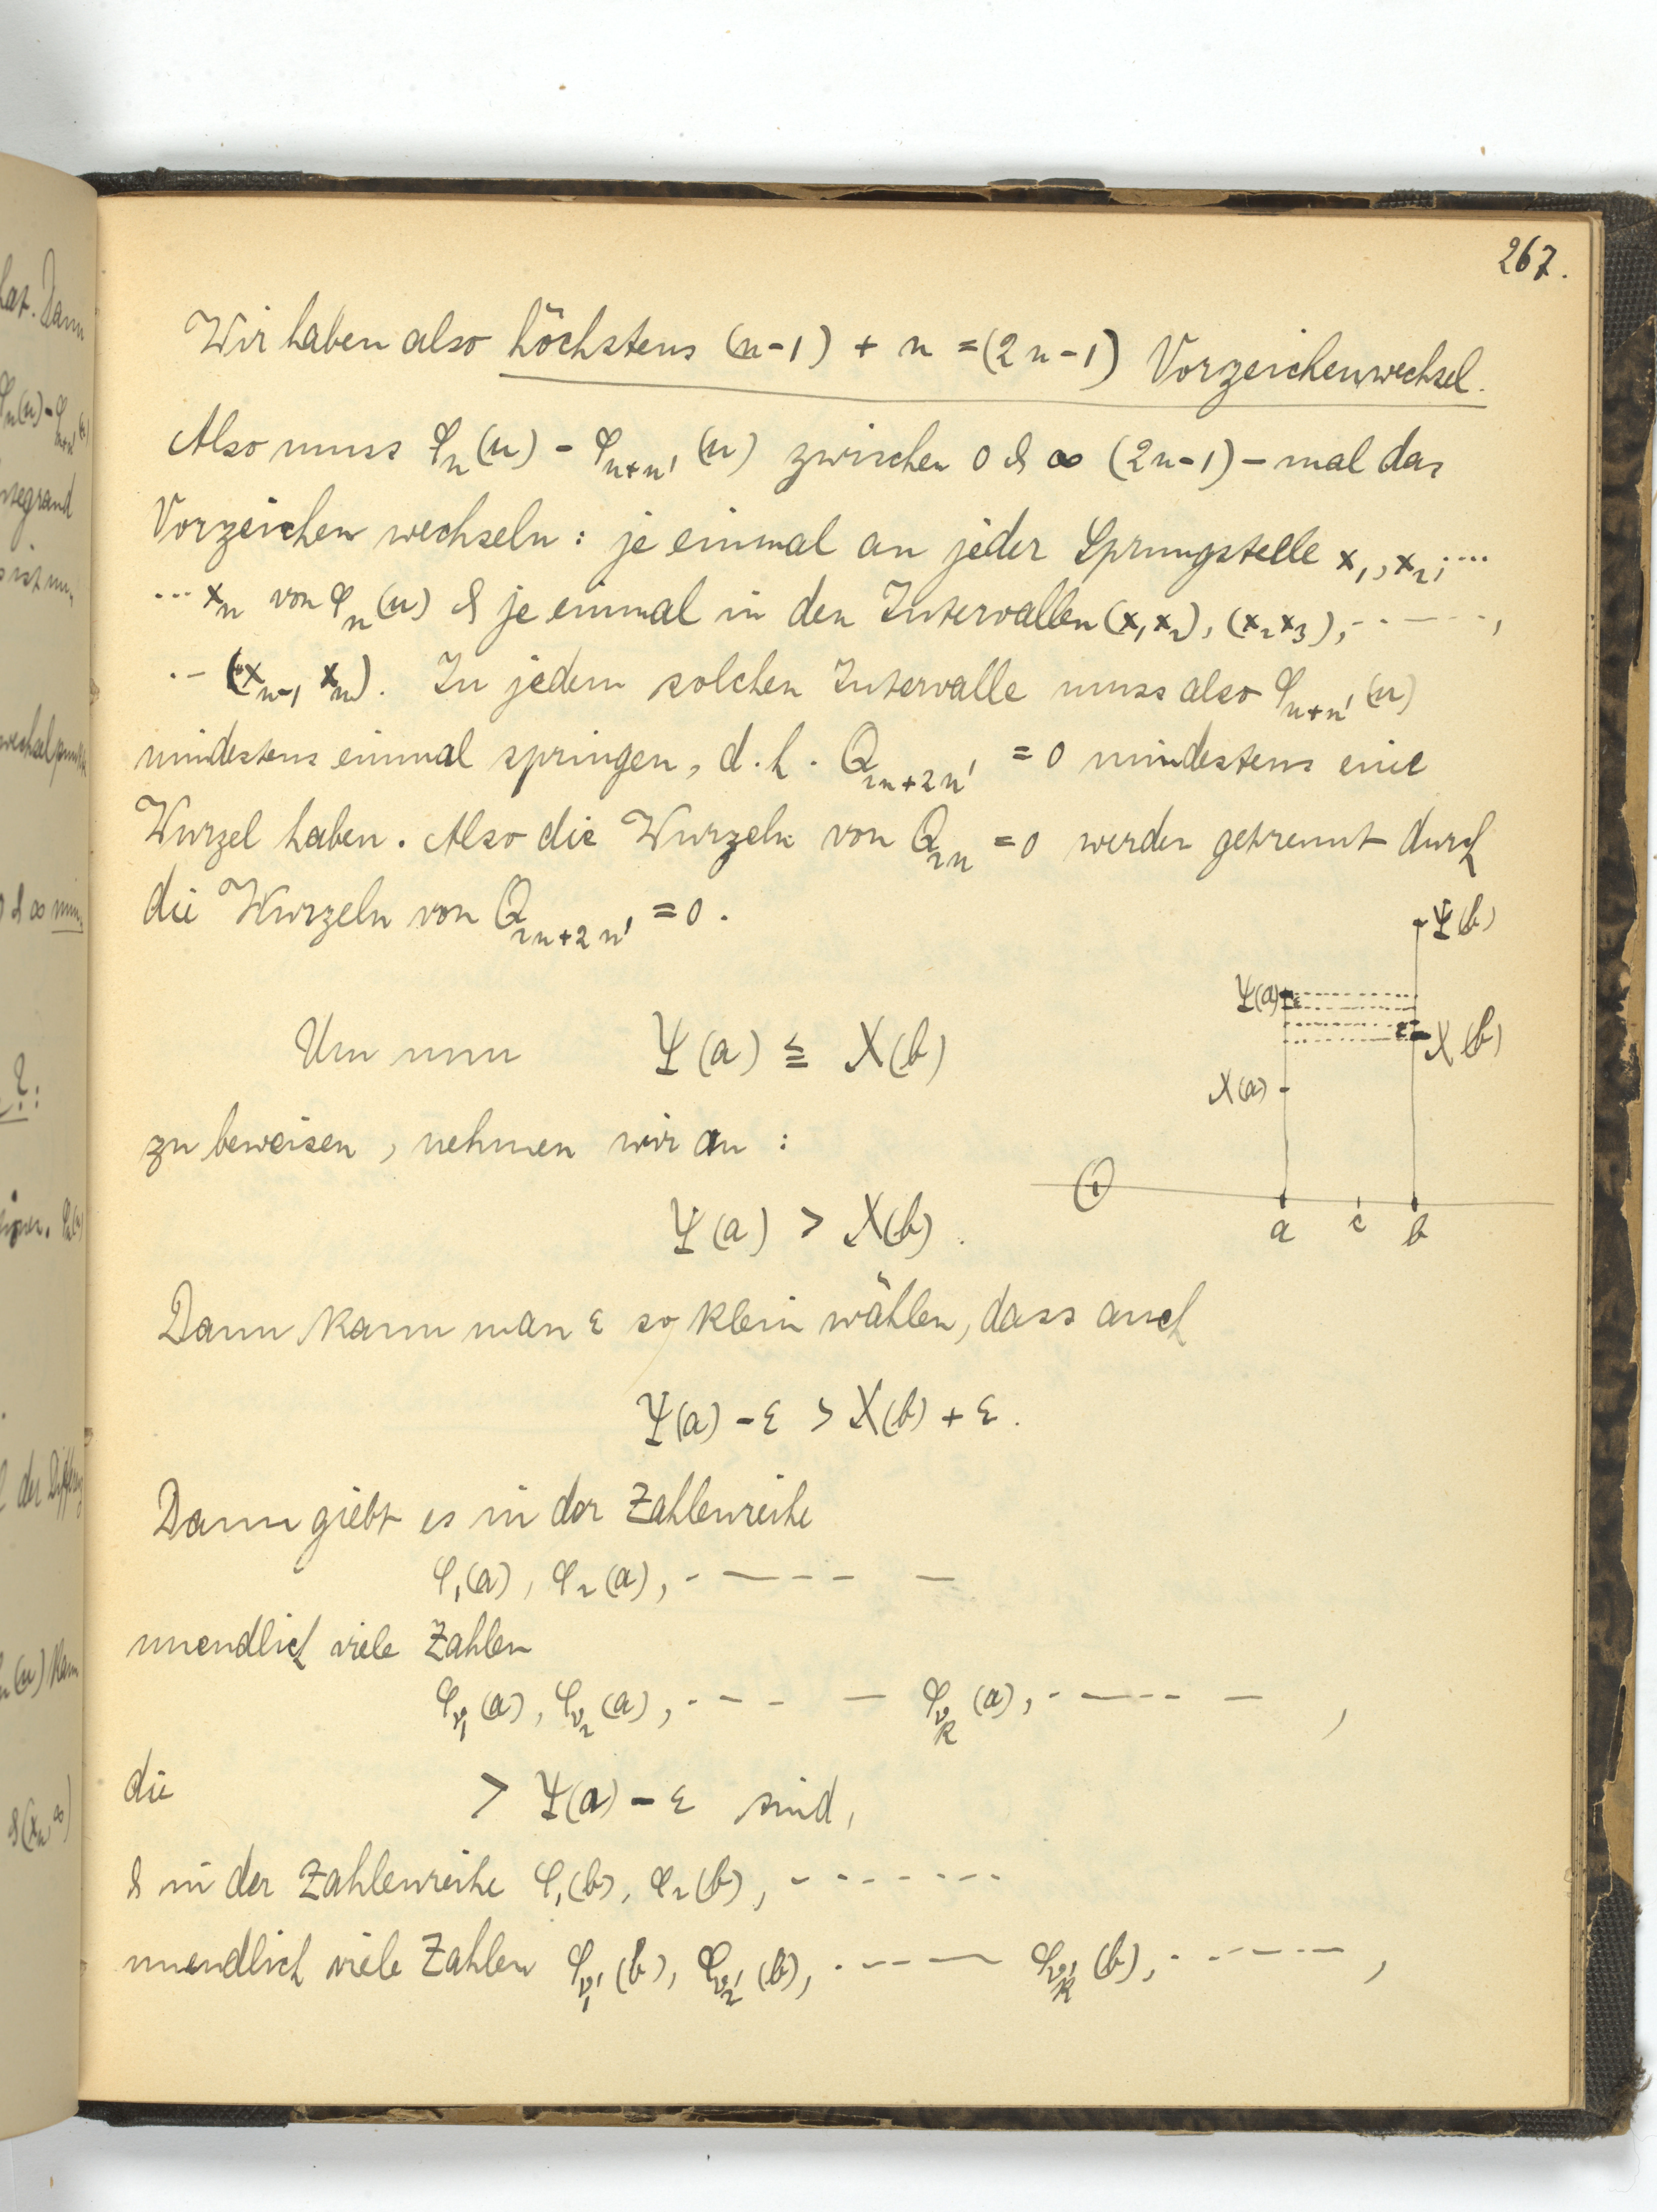 267.
Wir haben also höchstens (n-1) + n = (2n-1) Vorzeichenwechsel.
Also muss φ_n(u) - φ_{n+n'}(u) zwischen 0 & ∞ (2n-1)-mal das
Vorzeichen wechseln: je einmal an jeder Sprungstelle x_1, x_2, ....
... x_n von φ_n(u) & je einmal in den Intervallen (x_1 x_2), (x_2 x_3), - - - - - ,
- - (x_{n-1} x_n). In jedem solchen Intervalle muss also φ_{n+n'}(u)
mindestens einmal springen, d.h. Q_{2n+2n'} = 0 mindestens eine
Wurzel haben. Also die Wurzeln von Q_{2n} = 0 werden getrennt durch
die Wurzeln von Q_{2n+2n'} = 0.
Ψ(b)
Ψ(a) ε
ε X(b)
X(a)
a c b
Um nun Ψ(a) ≦ X(b)
zu beweisen, nehmen wir an :
Ψ(a) > X(b).
Dann kann man ε so klein wählen, dass auch
Ψ(a) - ε > X(b) + ε.
Dann giebt es in der Zahlenreihe
φ_1(a), φ_2(a), - - - - -
unendlich viele Zahlen
φ_{ν_1}(a), φ_{ν_2}(a), - - - - φ_{ν_k}(a), - - - - - ,
die > Ψ(a) - ε sind,
& in der Zahlenreihe φ_1(b), φ_2(b), - - - - - - -
unendlich viele Zahlen φ_{ν_1'}(b), φ_{ν_2'}(b), - - - - φ_{ν_k'}(b), - - - - - ,